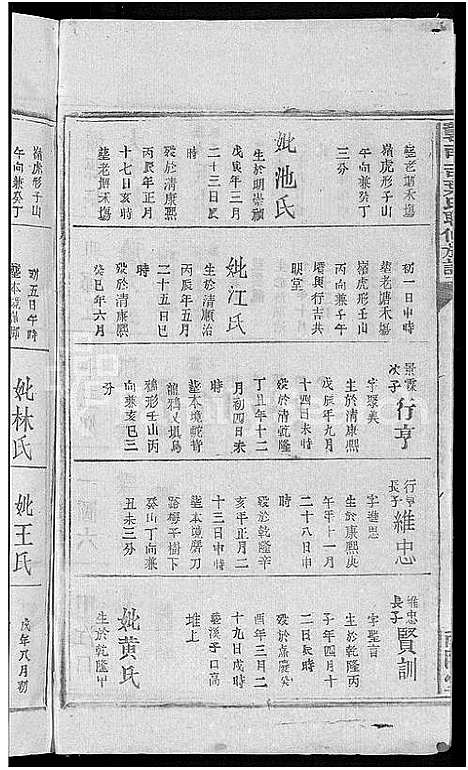 塟老塘禾塲
嶺虎形子山
午向兼癸丁
三分
妣池氏
生於明崇禎
戊寅年三月
二十三日辰
時
歿於清康熙
丙辰年正月
十七日亥時
塟老塘禾塲
嶺虎形子山
午向兼癸丁
初一日申時
塟老塘禾塲
嶺虎形壬山
丙向兼子午
壻與行吉共
明堂
妣江氏
生於清順治
丙辰年五月
二十五日巳
時
歿於清康熙
癸巳年六月
初五日午時
景雲
次子
行亨
字聚美
生於清康熙
戊辰年九月
十四日未時
歿於清乾隆
丁丑年十二
月初四日未
時
塟本境蛇背
龍鴉又垻烏
鴉形壬山丙
向兼亥巳三
分
妣林氏
行亨
長子
維忠
字進思
生於康熙庚
午年十一月
二十八日申
時
歿於乾隆辛
亥年正月二
十三日申時
塟本境磨刀
路梅子樹下
癸山丁向兼
丑未三分
妣王氏
維忠
長子
賢訓
字聖言
生於乾隆丙
子年四月十
二日辰時
歿於嘉慶癸
酉年三月二
十九日戌時
塟溪子口高
堆上
妣黃氏
生於乾隆甲
戌年八月初